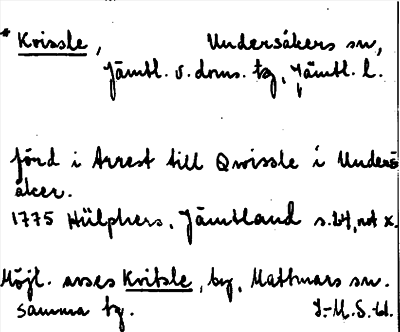 * Kvissle, Undersåkers sn,
Jämtl. v. doms. tg, Jämtl. l.
förd i Arrest till Qwissle i Unders
åker.
1775 Hülphers, Jämtland s. 64, not x.
Möjl. avses Kvitsle, by, Mattmars sn.
samma tg. J.-M. S.-bl.